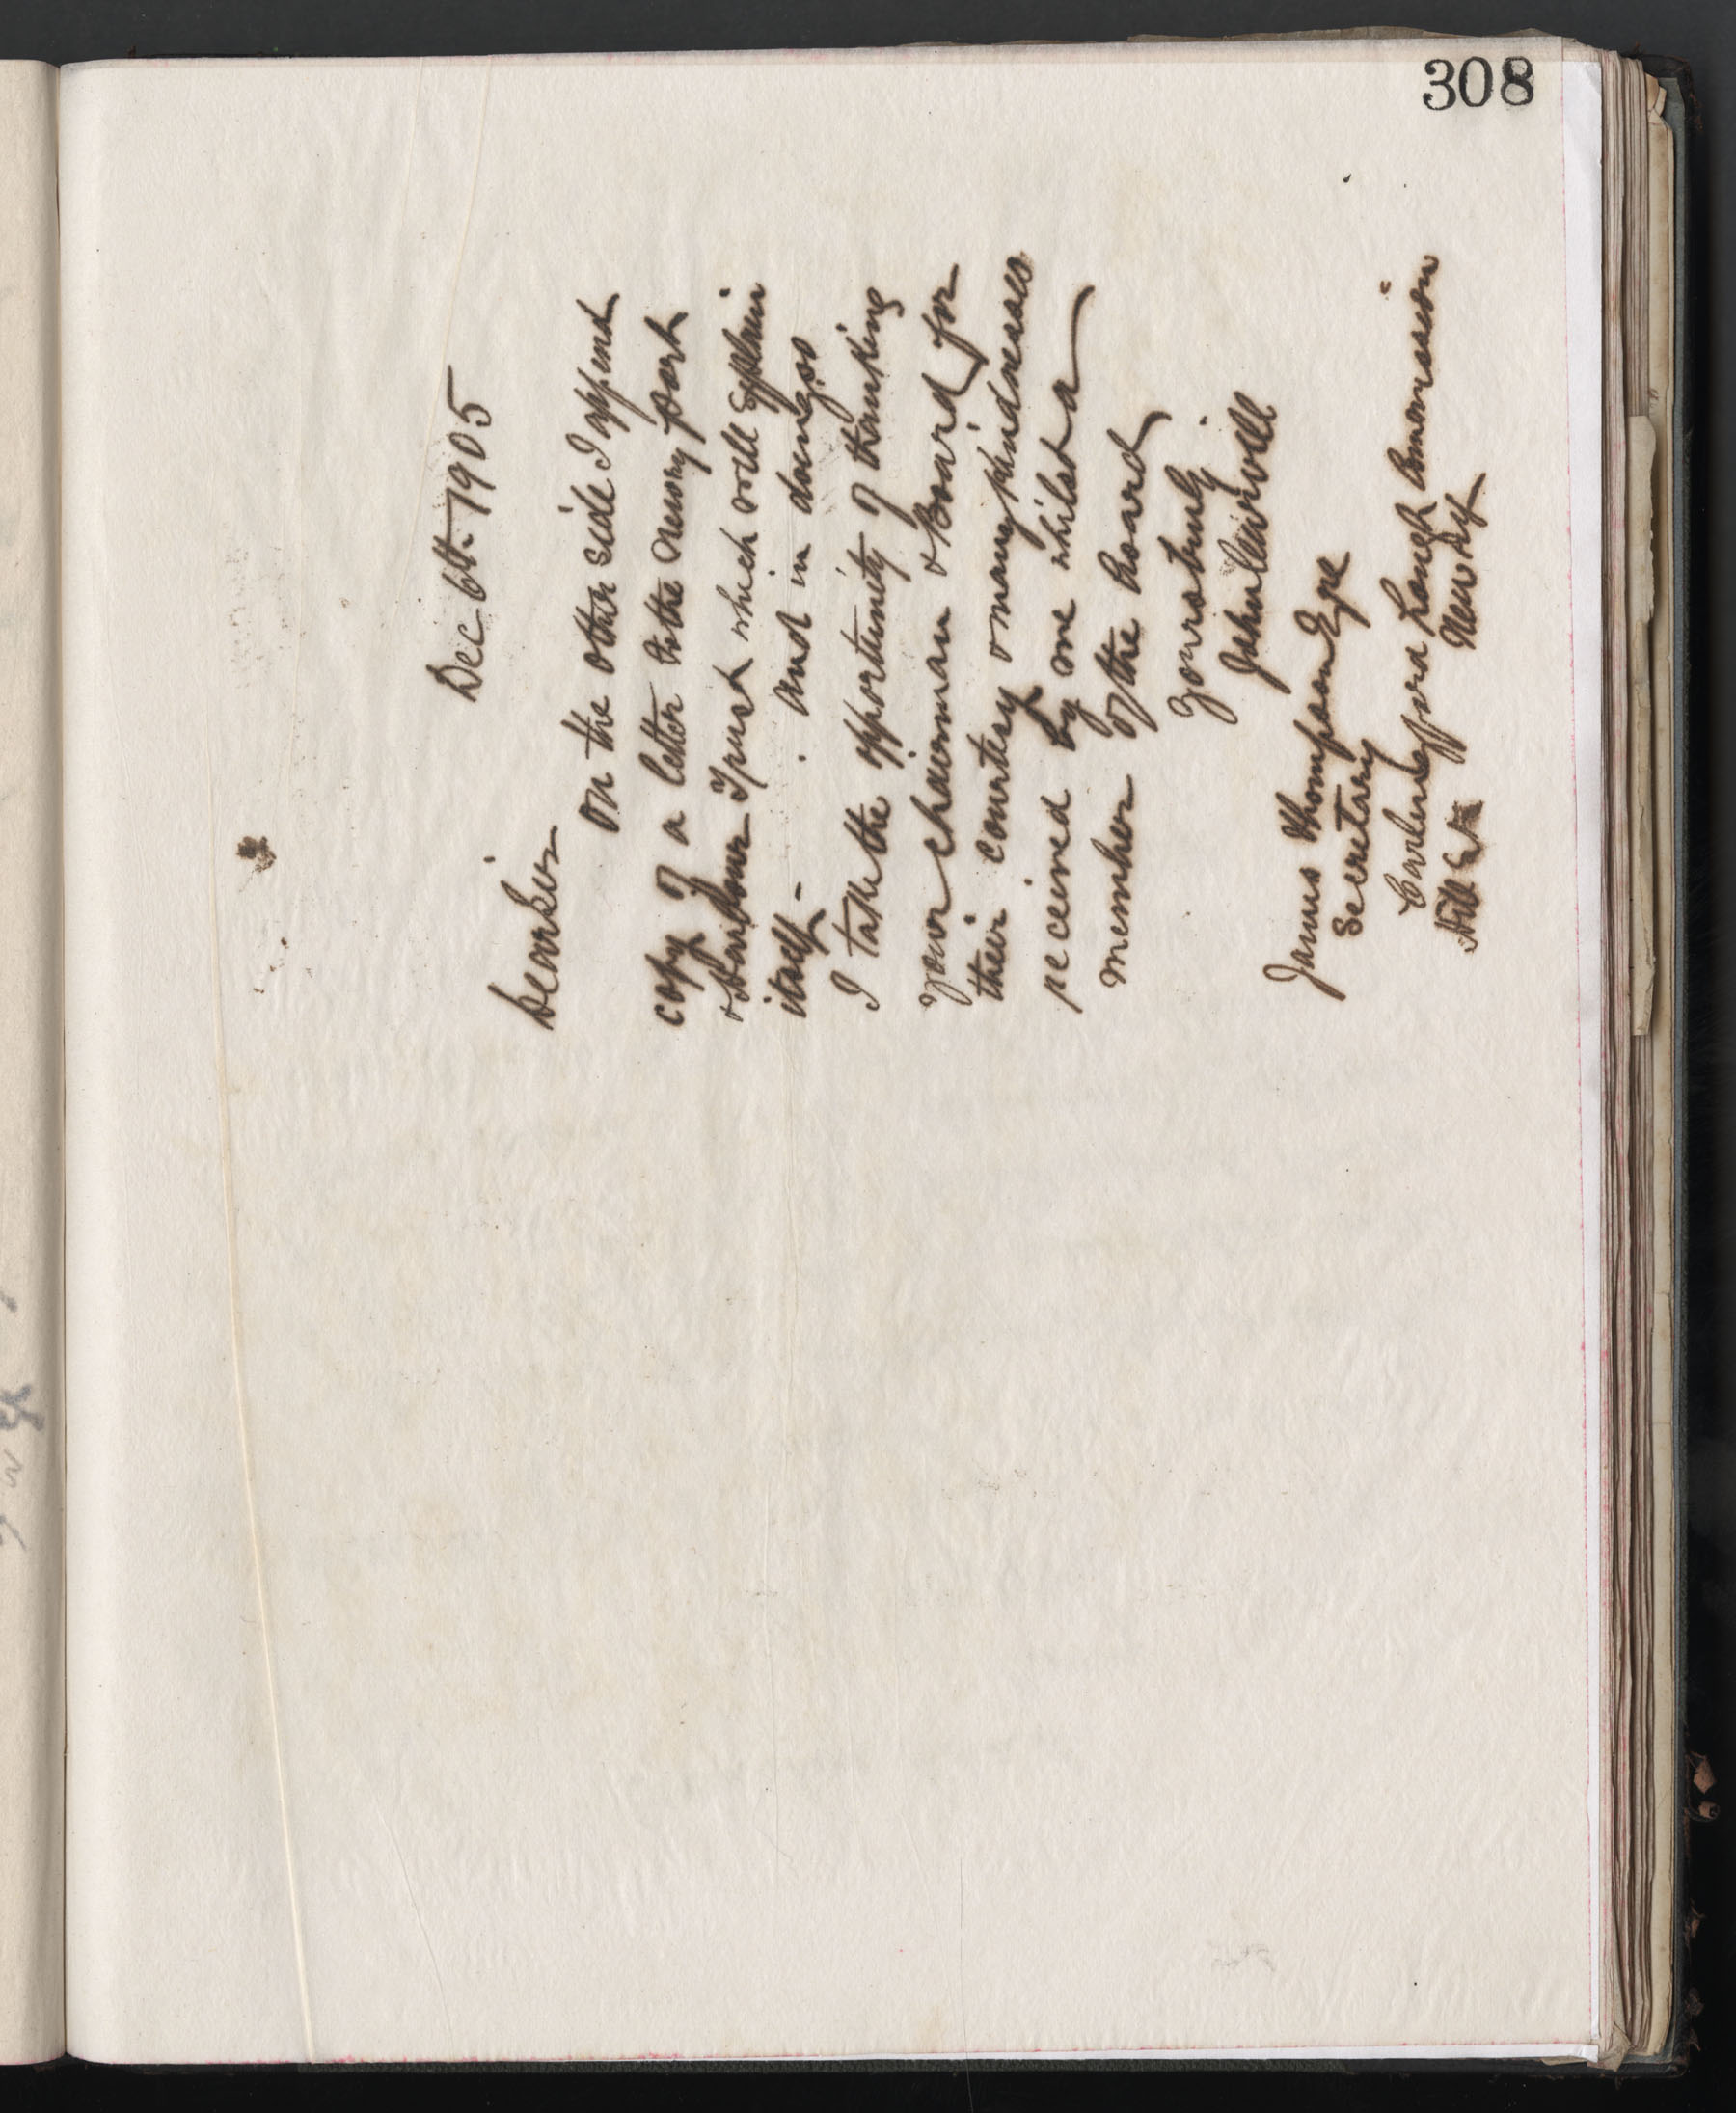 308
Dec 6th 1905
Dear Sir
On the other side I append
copy of a letter to the Newry port
& Harbour Trust which will explain
itself - . And in doing so
I take the opportunity of thanking
your chairman & Board for
their courtesy & many kindnesses
received by me whilst a
member of the Board
Yours truly
John
James Thompson Esqe
Secretary
Carlingford Lough Commission
Newry